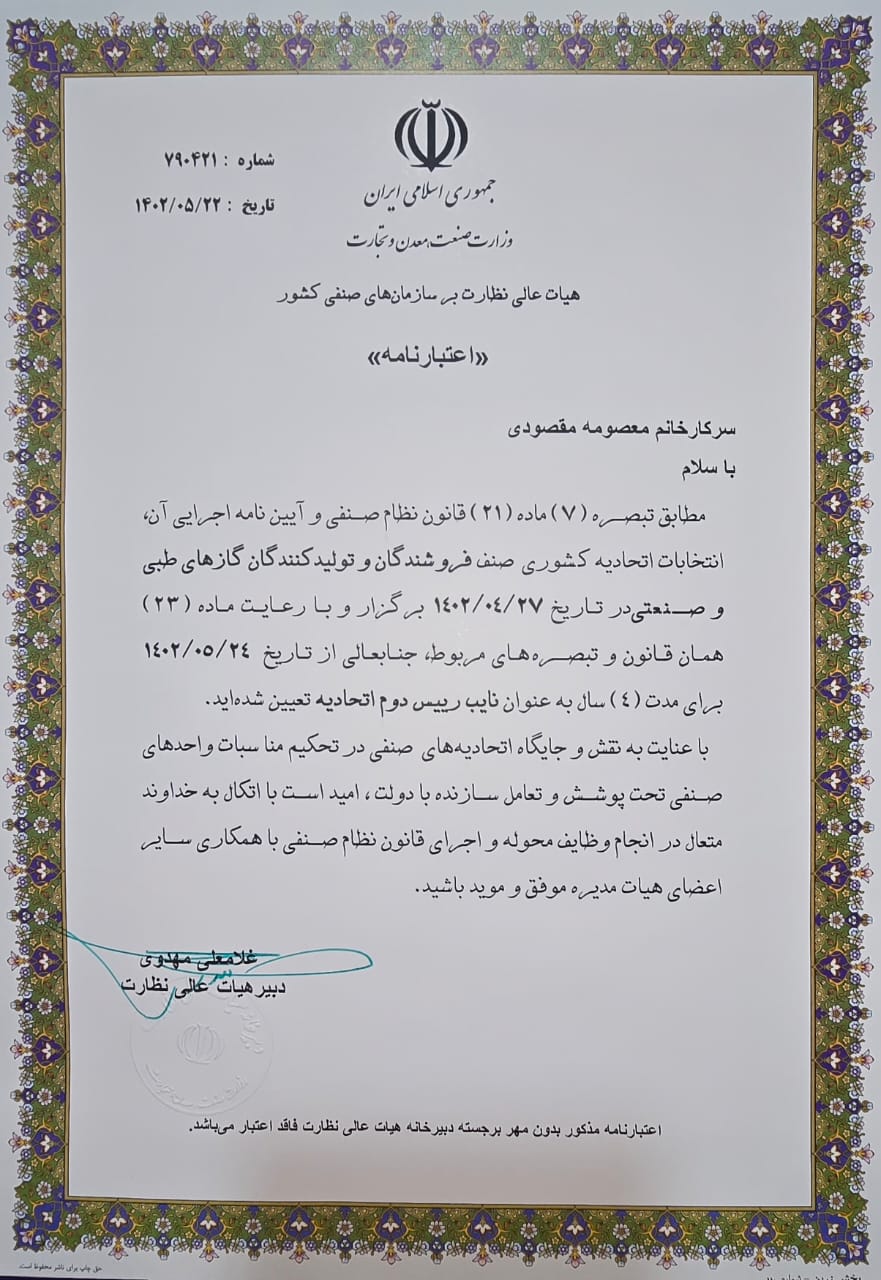 شماره : ۷۹۰۴۲۱
تاریخ : ۱۴۰۲/۰۵/۲۲
جمهوری اسلامی ایران
وزارت صنعت، معدن و تجارت
هیات عالی نظارت بر سازمان‌های صنفی کشور
«اعتبارنامه»
سرکارخانم معصومه مقصودی
با سلام
مطابق تبصره (۷) ماده (۲۱) قانون نظام صنفی و آیین نامه اجرایی آن،
انتخابات اتحادیه کشوری صنف فروشندگان و تولیدکنندگان گازهای طبی
و صنعتی در تاریخ ۱٤۰۲/۰٤/۲۷ برگزار و با رعایت ماده (۲۳)
همان قانون و تبصره‌های مربوط، جنابعالی از تاریخ ۱٤۰۲/۰٥/۲٤
برای مدت (٤) سال به عنوان نایب رییس دوم اتحادیه تعیین شده‌اید.
با عنایت به نقش و جایگاه اتحادیه‌های صنفی در تحکیم مناسبات واحدهای
صنفی تحت پوشش و تعامل سازنده با دولت، امید است با اتکال به خداوند
متعال در انجام وظایف محوله و اجرای قانون نظام صنفی با همکاری سایر
اعضای هیات مدیره موفق و موید باشید.
غلامعلی مهدوی
دبیر هیات عالی نظارت
اعتبارنامه مذکور بدون مهر برجسته دبیرخانه هیات عالی نظارت فاقد اعتبار می‌باشد.
حق چاپ برای ناشر محفوظ است.